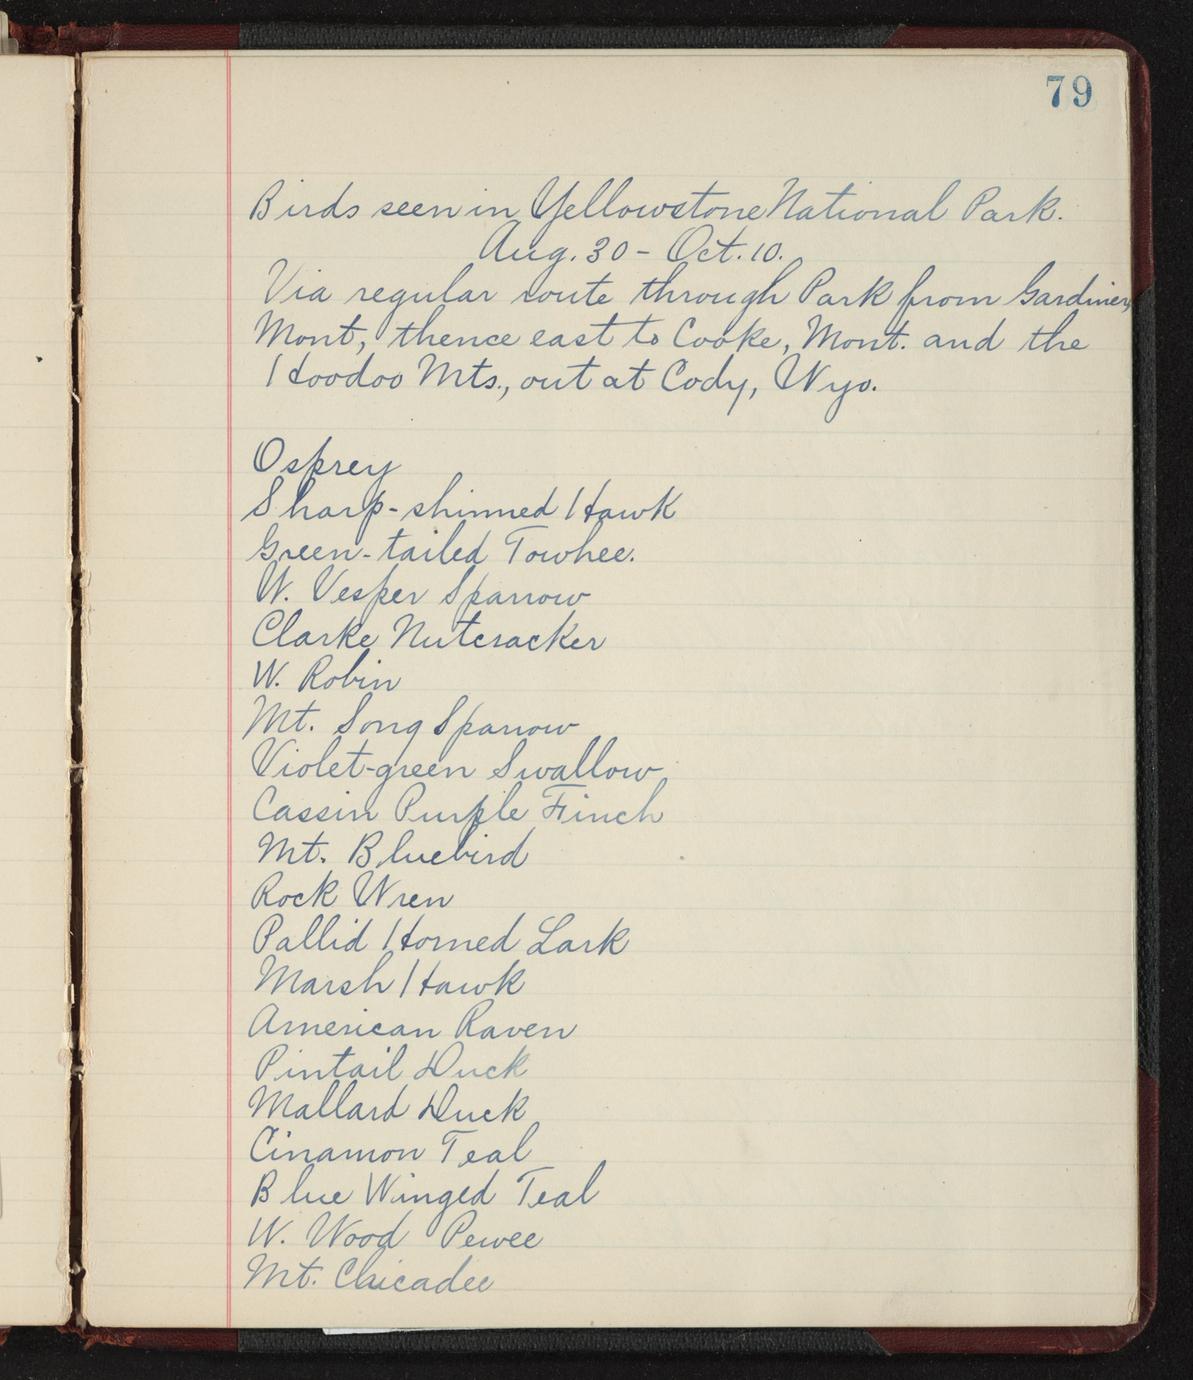 79
Birds seen in Yellowstone National Park.
Aug. 30 - Oct. 10.
Via regular route through Park from Gardiner,
Mont, thence east to Cooke, Mont. and the
Hoodoo Mts., out at Cody, Wyo.
Osprey
Sharp-shinned Hawk
Green-tailed Towhee.
W. Vesper Sparrow
Clarke Nutcracker
W. Robin
Mt. Song Sparrow
Violet-green Swallow
Cassin Purple Finch
Mt. Bluebird
Rock Wren
Pallid Horned Lark
Marsh Hawk
American Raven
Pintail Duck
Mallard Duck
Cinamon Teal
Blue Winged Teal
W. Wood Pewee
Mt. Chicadee